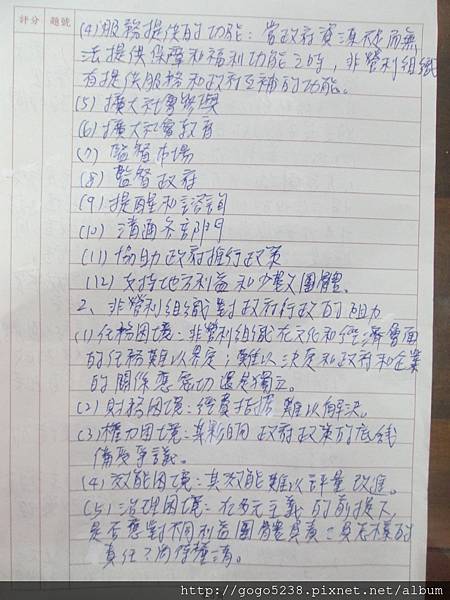 評分 題號
(4)服務提供的功能：當政府資源不足而無
法提供保障和福利功能之時，非營利組織
有提供服務和政府互補的功能。
(5)擴大社會參與
(6)擴大社會教育
(7)監督市場
(8)監督政府
(9)提醒和諮詢
(10)溝通各部門
(11)協助政府推行政策
(12)支持地方利益和少數團體。
2、非營利組織對政府行政的阻力
(1)任務困境：非營利組織在文化和經濟層面
的任務難以界定；難以決定和政府和企業
的關係應密切還是獨立。
(2)財務困境：經費拮据難以解決。
(3)權力困境：其影響政府政策的底線
備受爭議。
(4)效能困境：其效能難以評量改進。
(5)治理困境：在多元主義的前提下，
是否應對不同利益團體負責；負怎樣的
責任？
http://gogo5238.pixnet.net/album